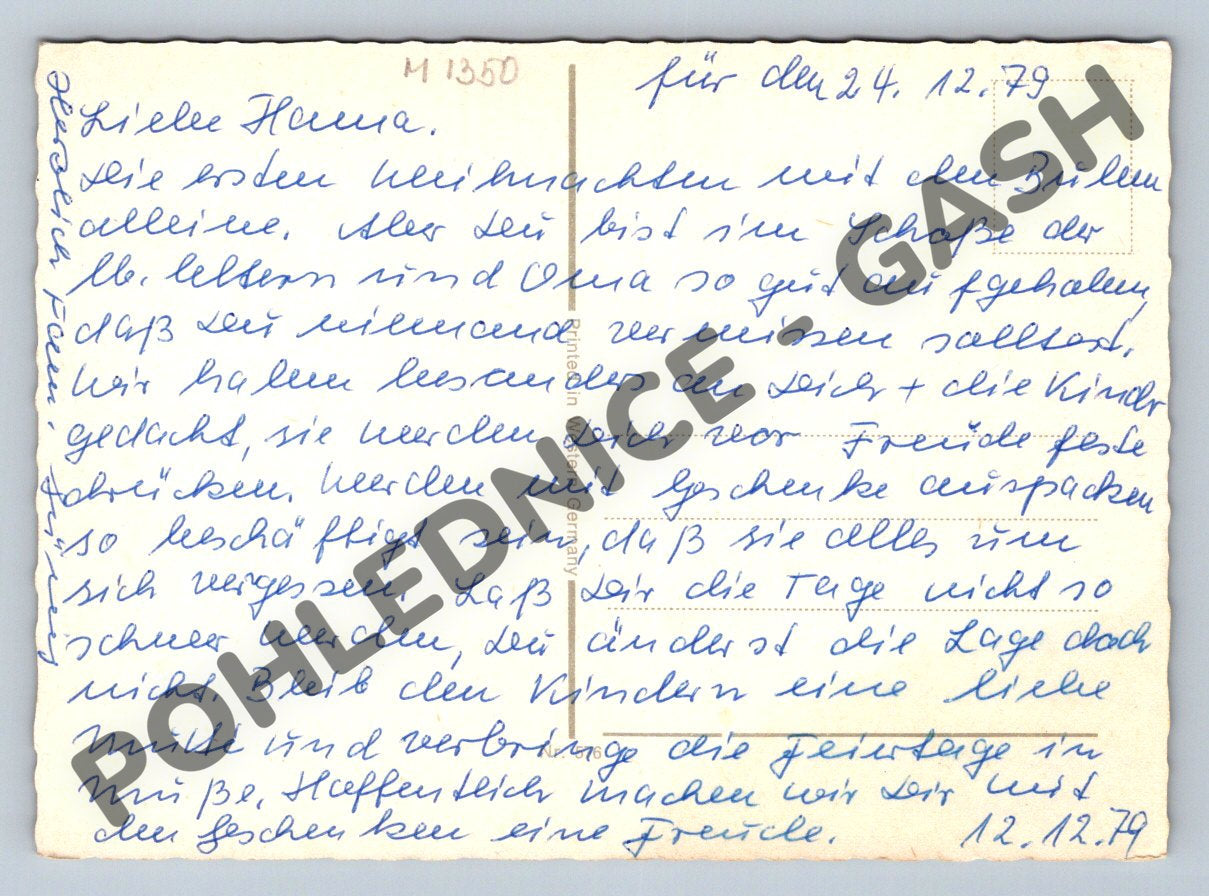 M 1350
für den 24. 12. 79
Liebe Hanna.
Die ersten Weihnachten mit den Buben
alleine. Aber Du bist im Schoße der
lb. Eltern und Oma so gut aufgehoben,
daß Du niemand vermissen solltest.
Wir haben besonders an Dich + die Kinder
gedacht, sie werden Dich vor Freude feste
drücken. Werden mit Geschenke auspacken
so beschäftigt sein, daß sie alles um
sich vergessen. Laß Dir die Tage nicht so
schwer werden, Du änderst die Lage doch
nicht. Bleib den Kindern eine liebe
Mutti und verbringe die Feiertage in
Muße. Hoffentlich machen wir Dir mit
den Geschenken eine Freude. 12.12.79
Herzlich Fam.
Printed in Western Germany
Nr. 576
POHLEDNICE - GASH